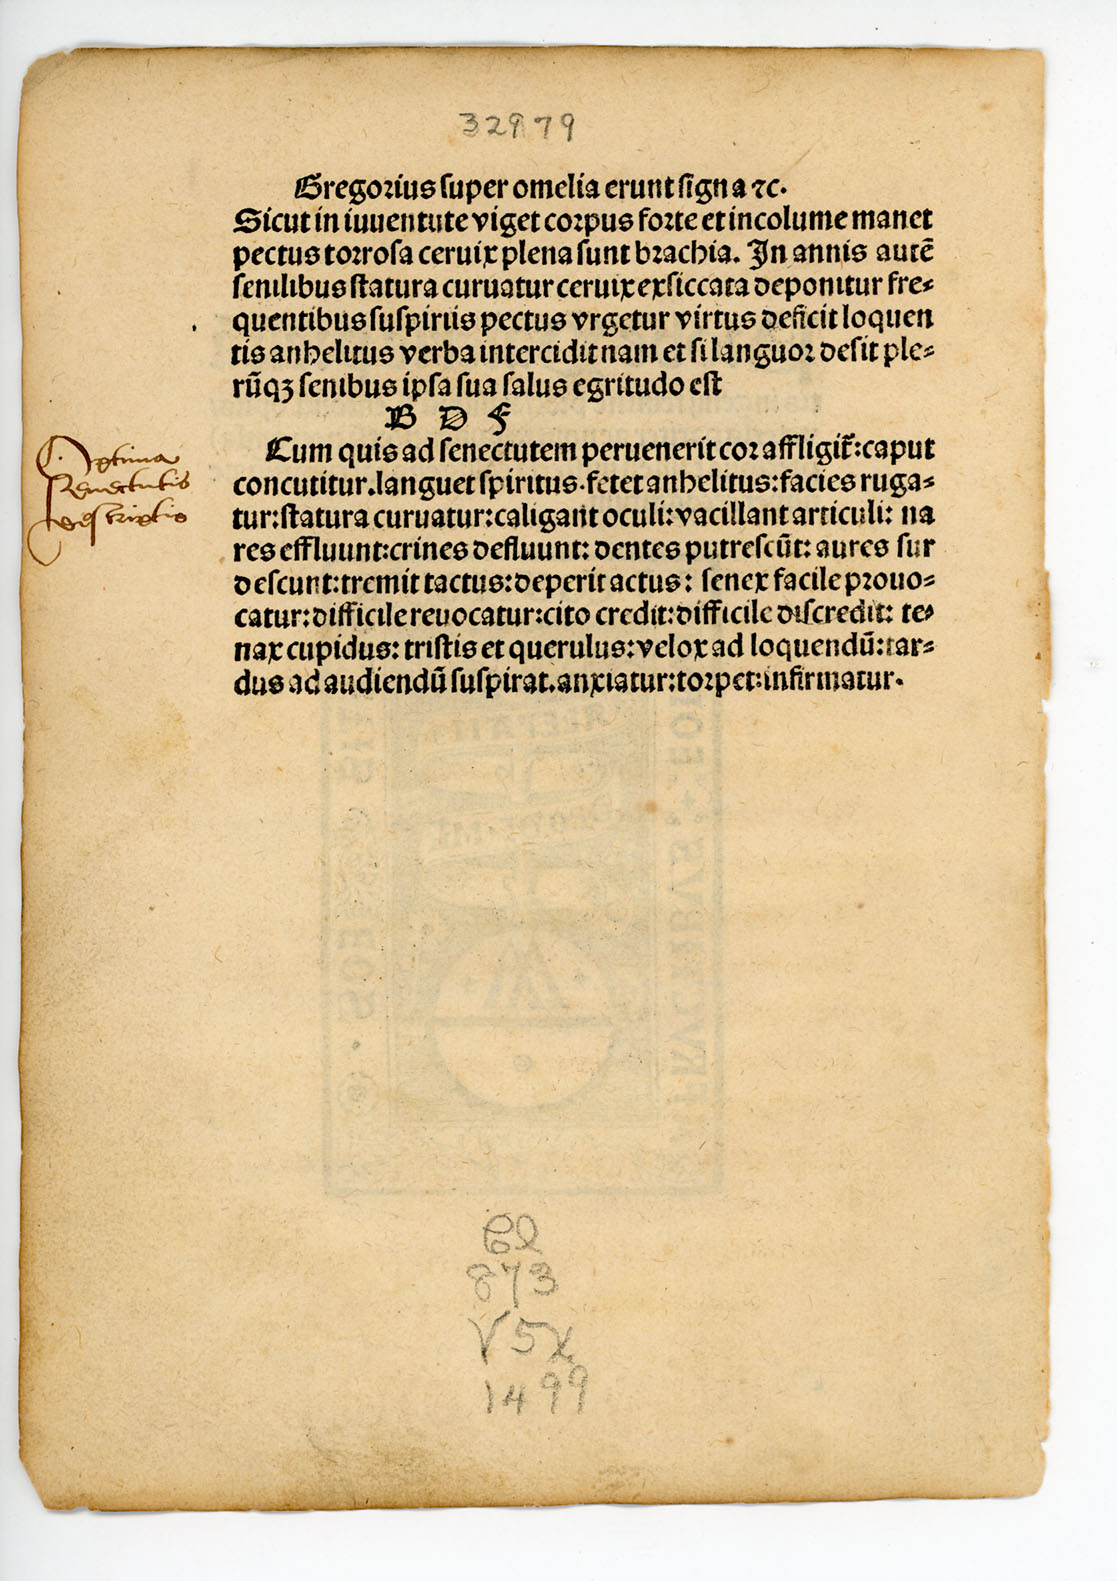 32979
Gregorius super omelia erunt signa ⁊c.
Sicut in iuuentute viget corpus forte et incolume manet
pectus torrosa ceruix plena sunt brachia. In annis autē
senilibus statura curuatur ceruix exsiccata deponitur fre⸗
quentibus suspiriis pectus vrgetur virtus deficit loquen
tis anhelitus verba intercidit nam et si languor desit ple⸗
rūqꝫ senibus ipsa sua salus egritudo est
B D F
Cum quis ad senectutem peruenerit cor affligit̃:caput
concutitur.languet spiritus.fetet anhelitus:facies ruga⸗
tur:statura curuatur:caligant oculi:vacillant articuli: na
res effluunt:crines defluunt: dentes putrescūt: aures sur
descunt:tremit tactus:deperit actus: senex facile prouo⸗
catur:difficile reuocatur:cito credit:difficile discredit: te⸗
nax cupidus: tristis et querulus:velox ad loquendū:tar⸗
dus ad audiendū suspirat.anxiatur:torpet:infirmatur.
Optima
Senectutis
descriptio
873
V5x
1499